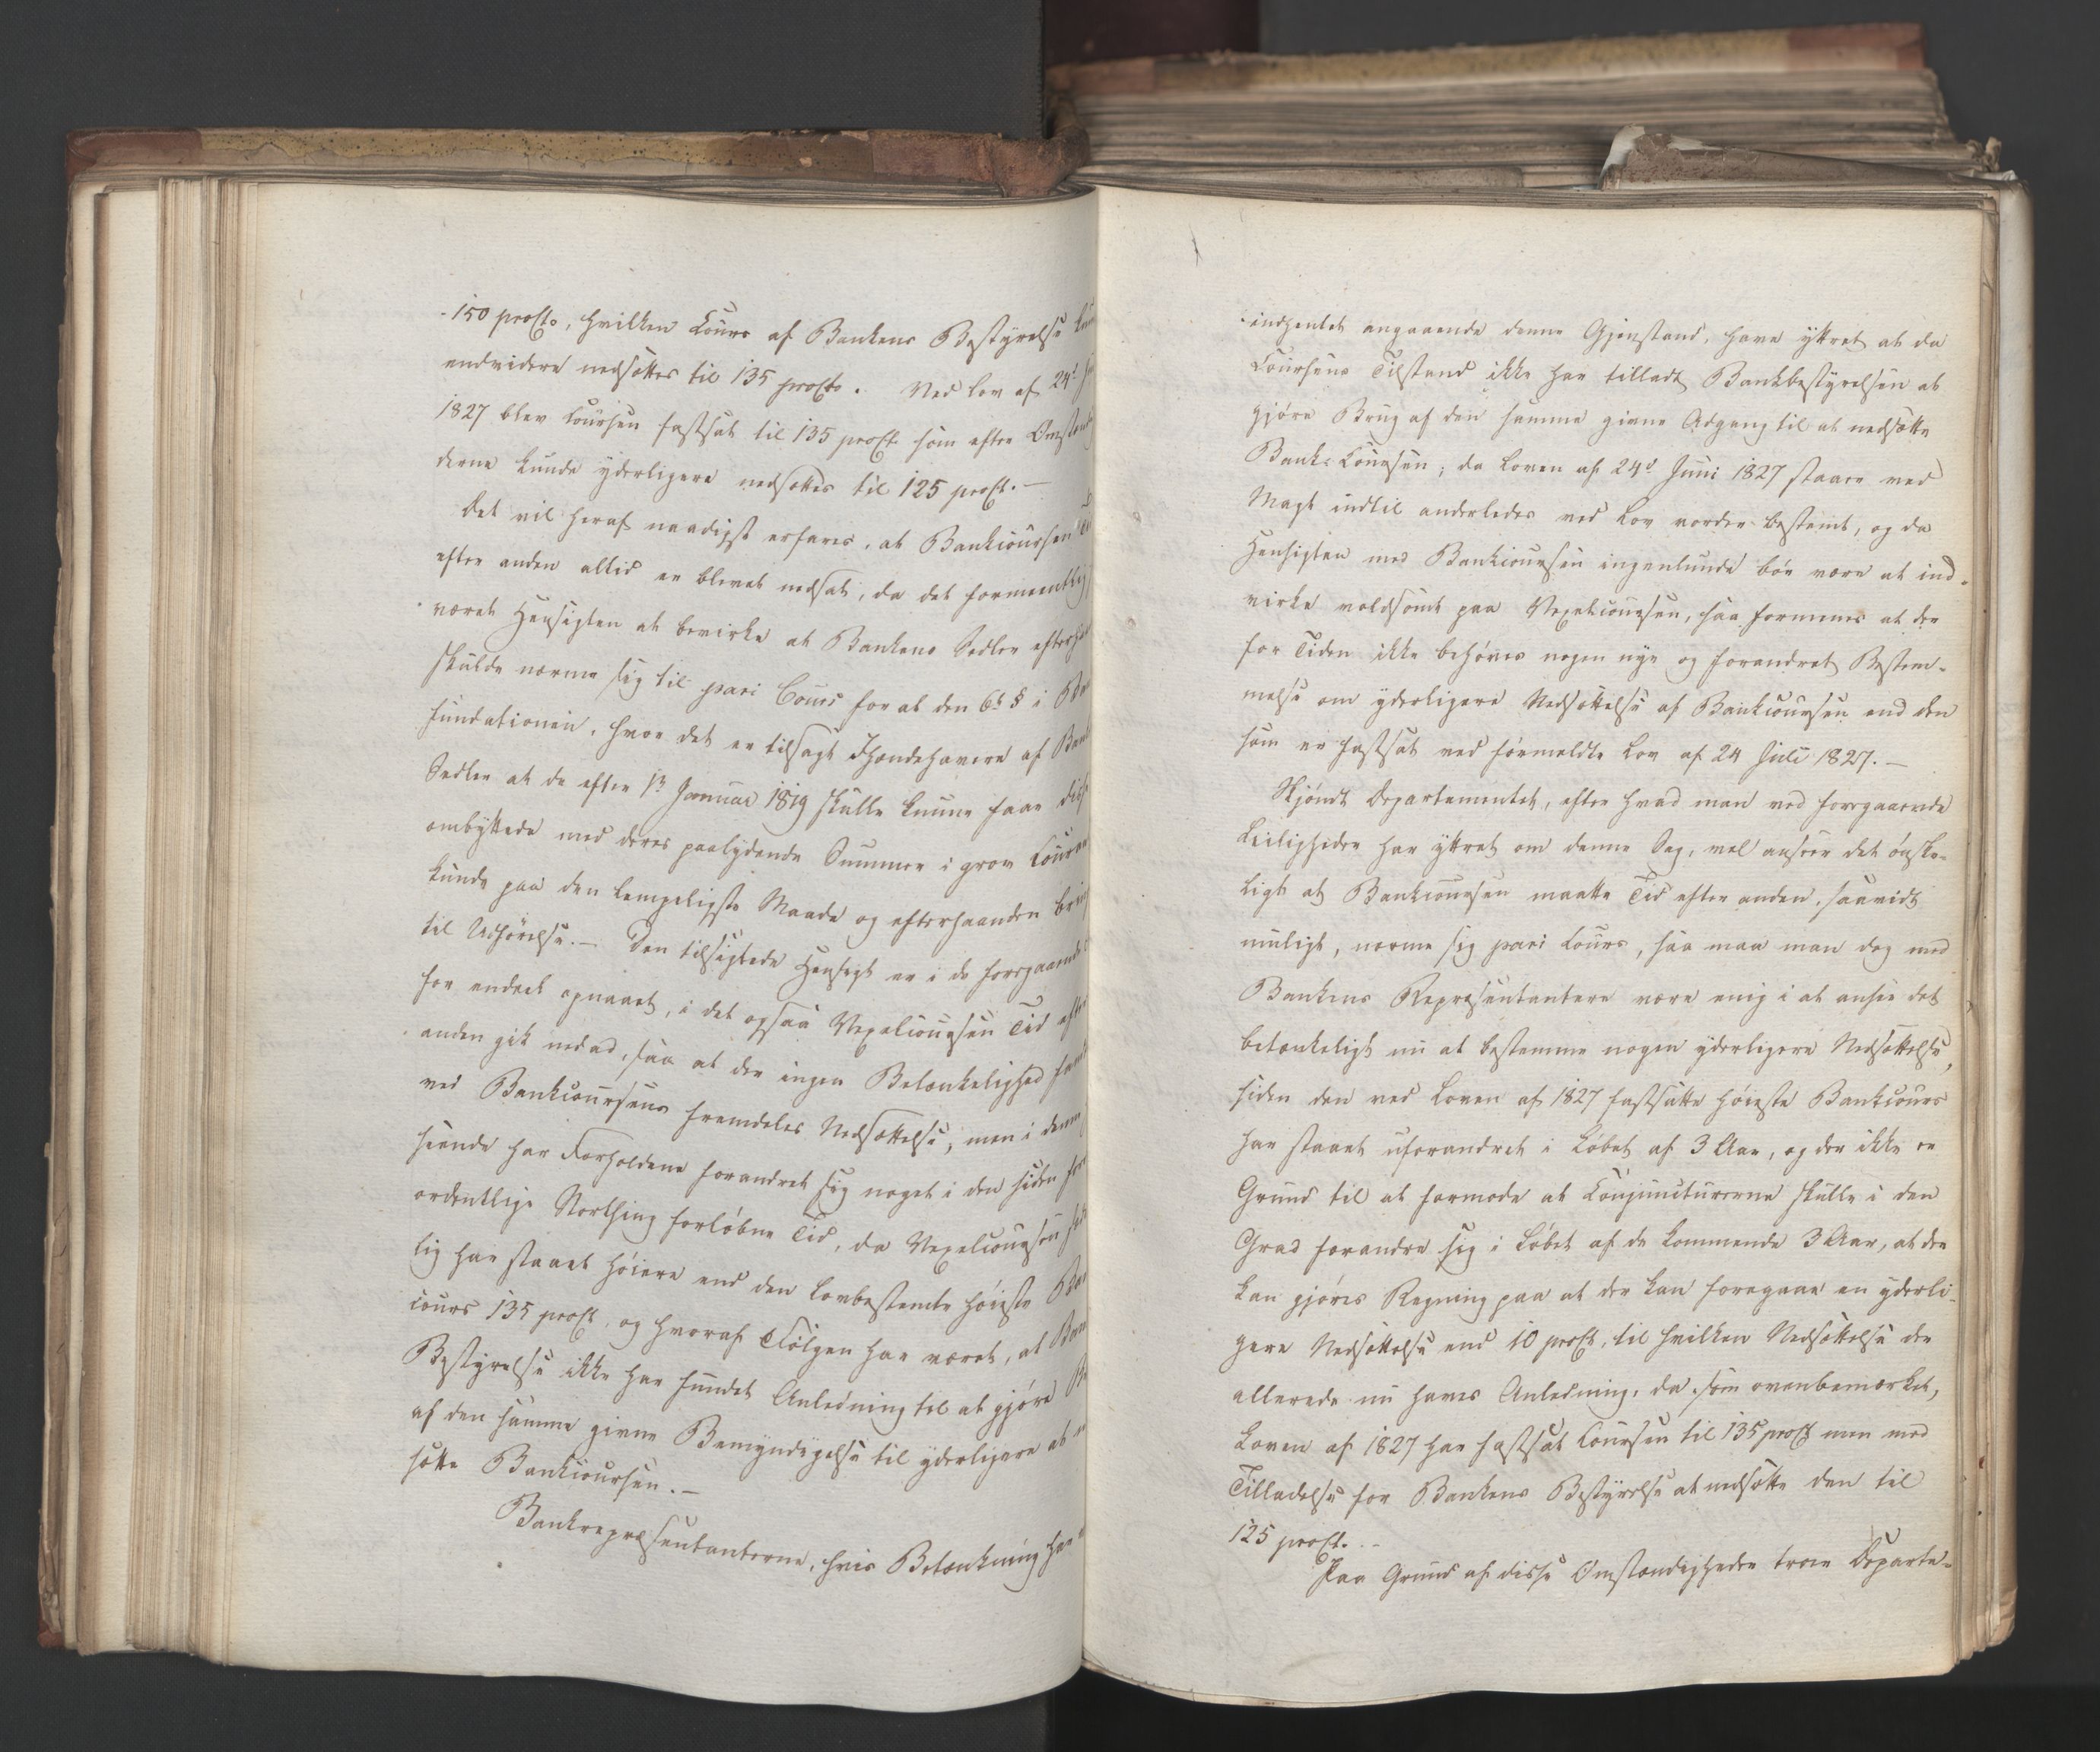 150 prosto, hvilken Cours af Bankens Bestyrelse
endvidere nedsættes til 135 prosto. Ved Lov af 24d
1827 blev Coursen fastsat til 135 proCt. som efter Omstænd
derne kunde yderligere nedsættes til 125 proCt. —
Det vil heraf naadigst erfares, at Bankcoursen
efter anden altid er blevet nedsat, da det formeentlig
været Hensigten at bevirke at Bankens Sedler efterh
skulde nærme sig til pari Cours for at den 6te § i
fundationen, hvor det er tilsagt Ihændehavere af Bank
Sedler at de efter 1ste Januar 1819 skulle kunne faae diss
ombyttede med deres paalydende Summer i grov Couran
kunde paa den lempeligste Maade og efterhaanden bring
til Udførelse. — Den tilsigtede Hensigt er i de foregaaende
for endeel opnaaet, i det ogsaa Vexelcoursen Tid efter
anden gik nedad, saa at der ingen Betænkelighed
ved Bankcoursens fremdeles Nedsættelse; men i denne
seende har Forholdene forandret sig noget i den siden
ordentlige Storthing forløbne Tid, da Vexelcoursen
lig har staaet høiere end den lovbestemte høieste
cours 135 proCt, og hvoraf Følgen har været, at
Bestyrelse ikke har fundet Anledning til at gjøre
af den samme givne Bemyndigelse til yderligere at
sætte Bankcoursen. —
Bankrepræsentanterne, hvis Betænkning har
indhentet angaaende denne Gjenstand, have yttret at da
Coursens Tilstand ikke har tilladt Bankbestyrelsen at
gjøre Brug af den samme givne Adgang til at nedsætte
Bank-Coursen; da Loven af 24d Juni 1827 staaer ved
Magt indtil anderledes ved Lov vorder bestemt, og da
Hensigten med Bankcoursen ingenlunde bør være at ind-
virke voldsomt paa Vexelcoursen, saa formenes at der
for Tiden ikke behøves nogen nye og forandret Bestem-
melse om yderligere Nedsættelse af Bankcoursen end den
som er fastsat ved førmeldte Lov af 24 Juli 1827. —
Skjøndt Departementet, efter hvad man ved foregaaende
Leiligheder har yttret om denne Sag, vel anseer det ønske-
ligt at Bankcoursen maatte Tid efter anden, saavidt
muligt, nærme sig pari Cours, saa maa man dog med
Bankens Repræsentantere være enig i at ansee det
betænkeligt nu at bestemme nogen yderligere Nedsættelse,
siden den ved Loven af 1827 fastsatte høieste Bankcours
har staaet uforandret i Løbet af 3 Aar, og der ikke er
Grund til at formode at Conjuncturerne skulle i den
Grad forandre sig i Løbet af de kommende 3 Aar, at der
kan gjøres Regning paa at der kan foregaae en yderli-
gere Nedsættelse end 10 proCt, til hvilken Nedsættelse der
allerede nu haves Anledning, da, som ovenbemærket,
Loven af 1827 har fastsat Coursen til 135 proCt men med
Tilladelse for Bankens Bestyrelse at nedsætte den til
125 proCt. —
Paa Grund af disse Omstændigheder troer Departe-